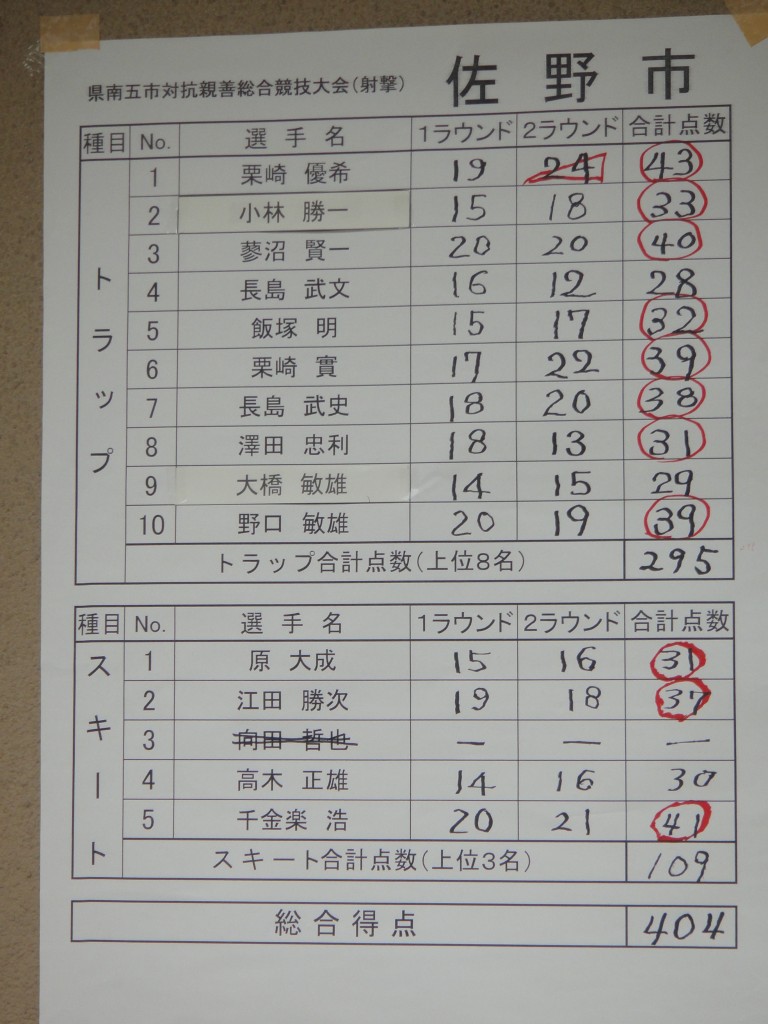 県南五市対抗親善総合競技大会(射撃) 佐野市
種目 No. 選手名 1ラウンド 2ラウンド 合計点数
トラップ
1 栗崎 優希 19 24 43
2 小林 勝一 15 18 33
3 蓼沼 賢一 20 20 40
4 長島 武文 16 12 28
5 飯塚 明 15 17 32
6 栗崎 實 17 22 39
7 長島 武史 18 20 38
8 澤田 忠利 18 13 31
9 大橋 敏雄 14 15 29
10 野口 敏雄 20 19 39
トラップ合計点数(上位8名) 295
種目 No. 選手名 1ラウンド 2ラウンド 合計点数
スキート
1 原 大成 15 16 31
2 江田 勝次 19 18 37
3 向田 哲也 — — —
4 高木 正雄 14 16 30
5 千金楽 浩 20 21 41
スキート合計点数(上位3名) 109
総合得点 404